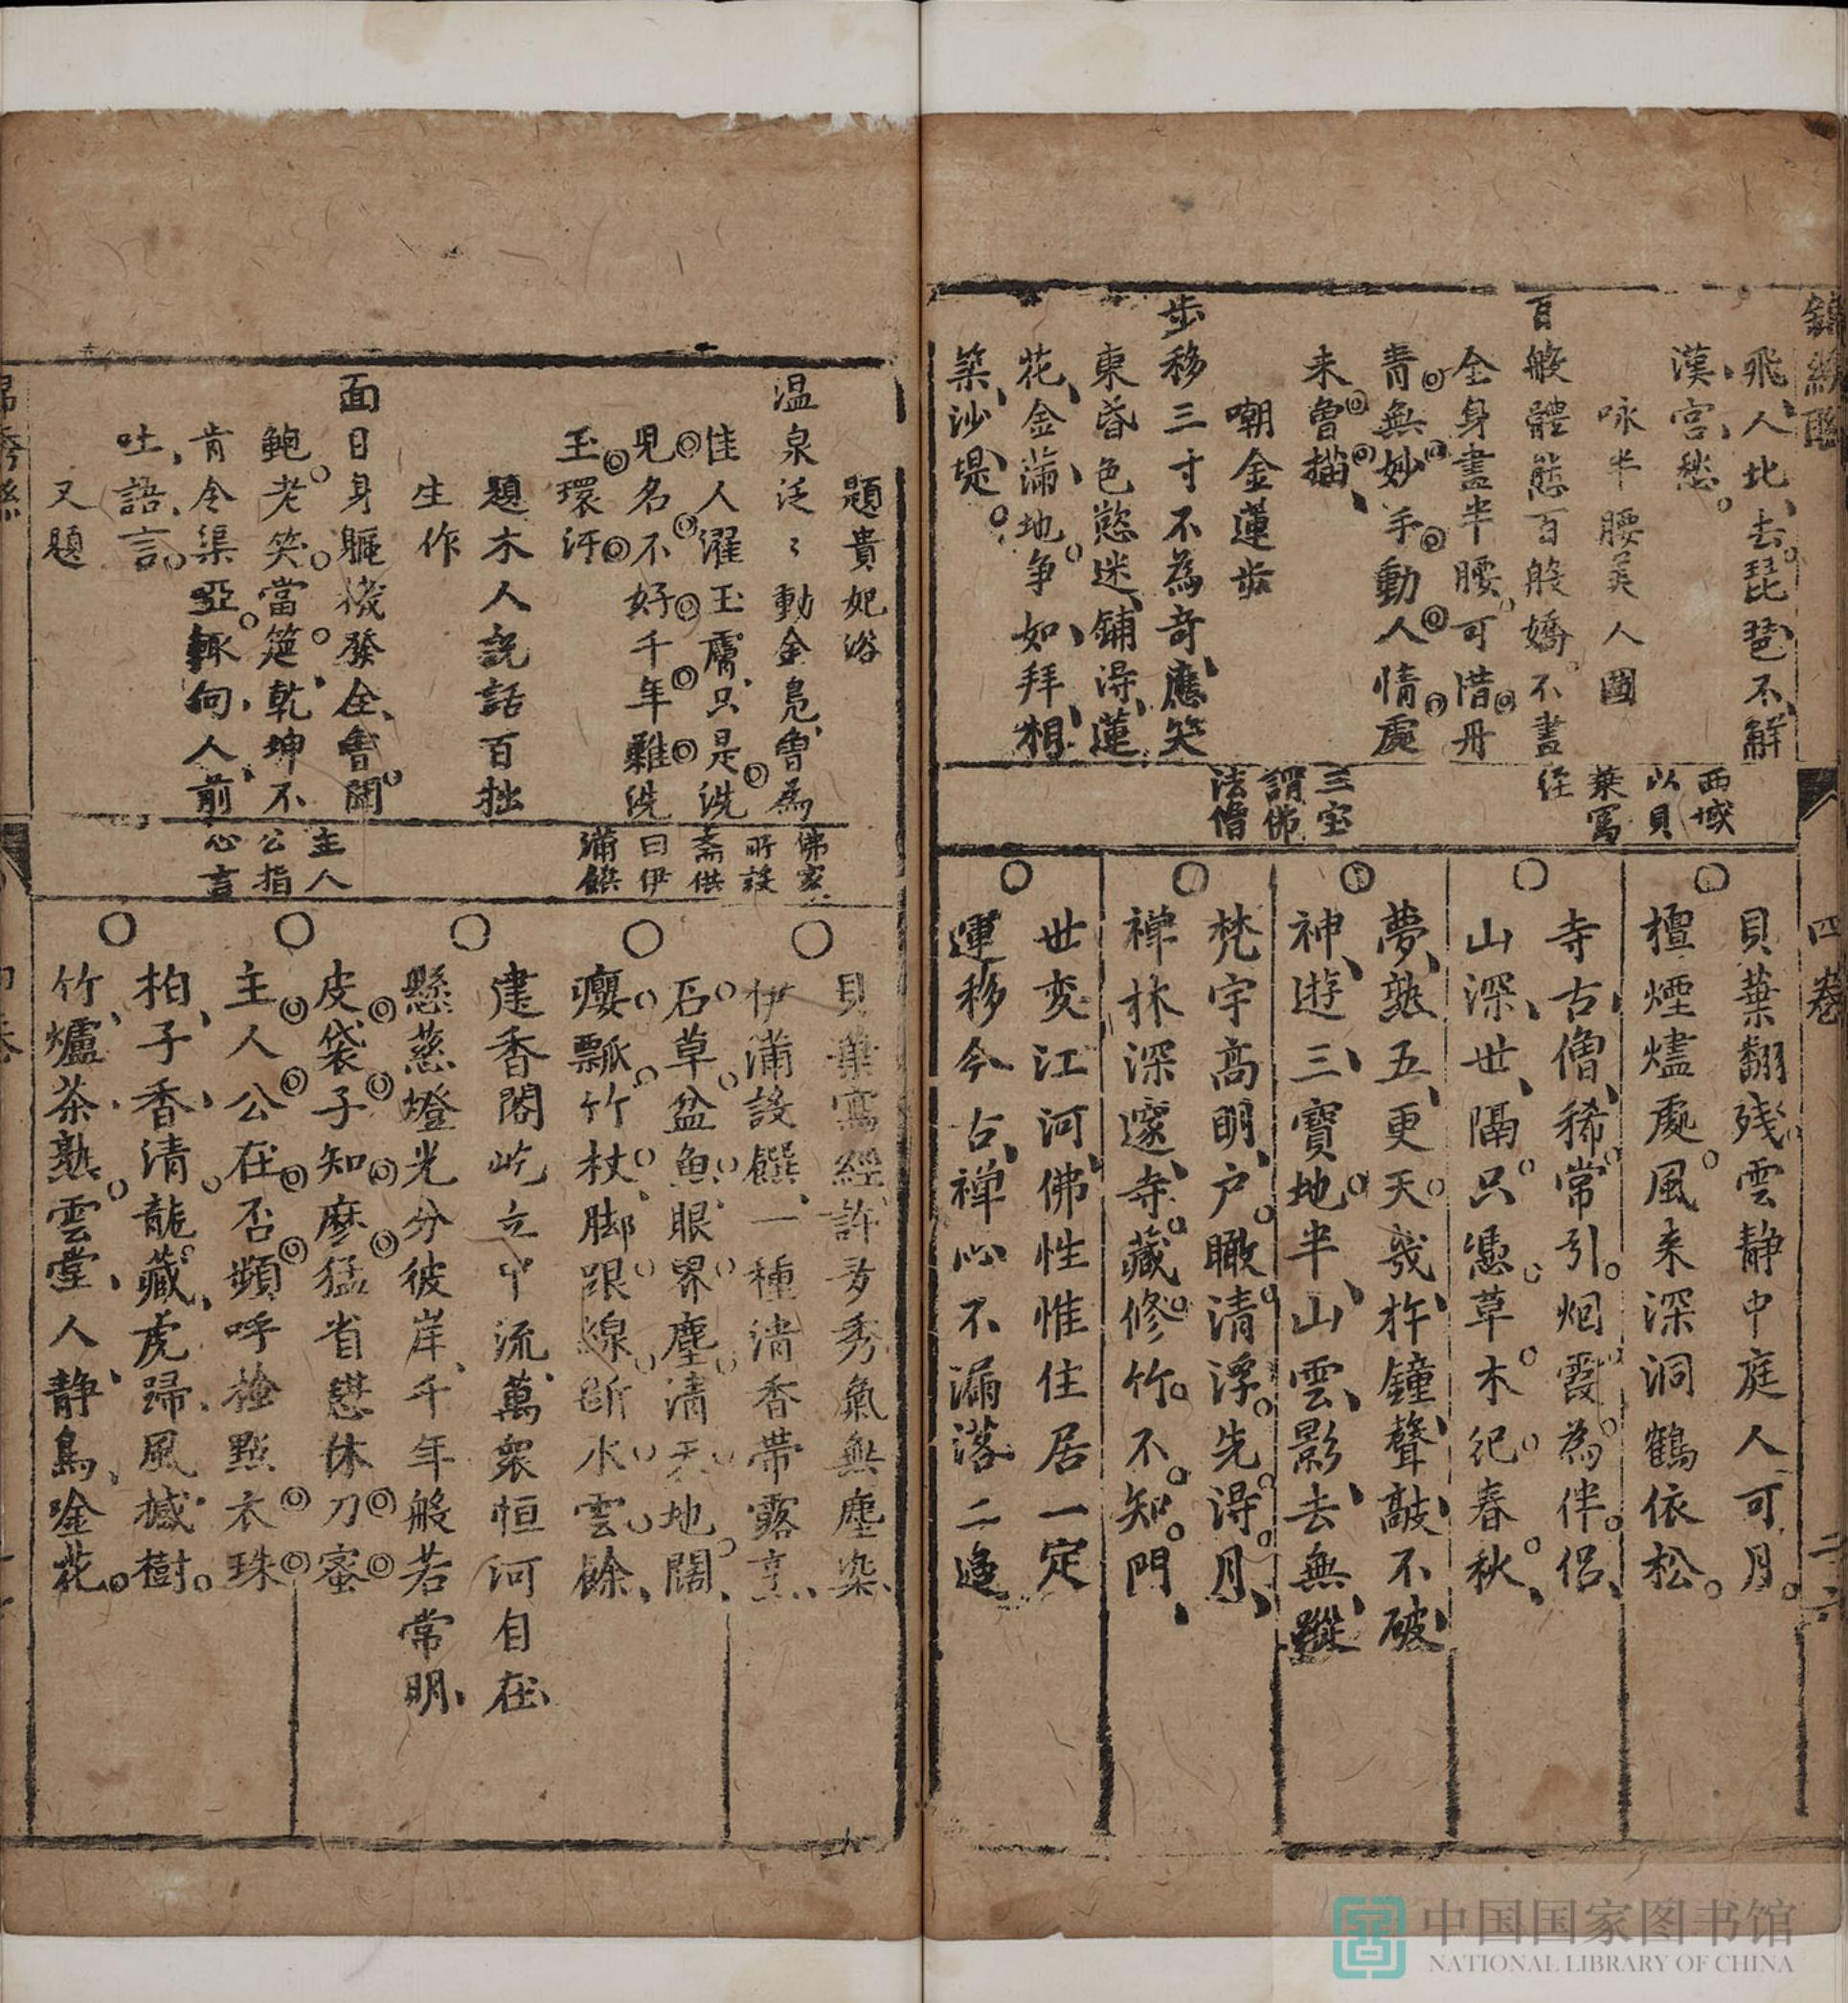 飛人北去琵琶不解
漢宮愁
咏半腰美人圖
百般體態百般嬌不畫
全身畫半腰可惜丹
青無妙手動人情處
来曾描
嘲金蓮步
步移三寸不為奇應笑
東昏色慾迷鋪得蓮
花金滿地争如拜相
築沙堤
西域
以貝
葉寫
経
三宝
謂佛
法僧
四卷
貝葉翻残雲静中庭人可月
檀煙燼處風来深洞鶴依松
寺古僧稀常引烟霞為伴侶
山深世隔只憑草木紀春秋
夢熟五更天幾杵鐘聲敲不破
神遊三寶地半山雲影去無蹤
梵宇高明户瞰清浮先得月
禅林深邃寺藏修竹不知門
世变江河佛性惟住居一定
運移今古禅心不漏落二邊
題貴妃浴
温泉泛々動金凫曾為
佳人濯玉膚只是洗
児名不好千年難洗
玉環汙
題木人説話百拙
生作
面目身軀機發全會開
鮑老笑當筵乾坤不
肯令渠啞輒向人前
吐語言
又題
佛家
所設
斋供
曰伊
蒲饌
主人
公指
心言
貝葉寫經許多秀氣無塵染
伊蒲設饌一種清香帶露烹
石草盆魚眼界塵清天地闊
癭瓢竹杖脚跟線断水雲餘
建香閣屹立中流萬衆恒河自在
懸慈燈光分彼岸千年般若常明
皮袋子知麽猛省慈休刀蜜
主人公在否頻呼檢點衣珠
柏子香清龍藏虎歸風撼樹
竹爐茶熟雲堂人静鳥唫花